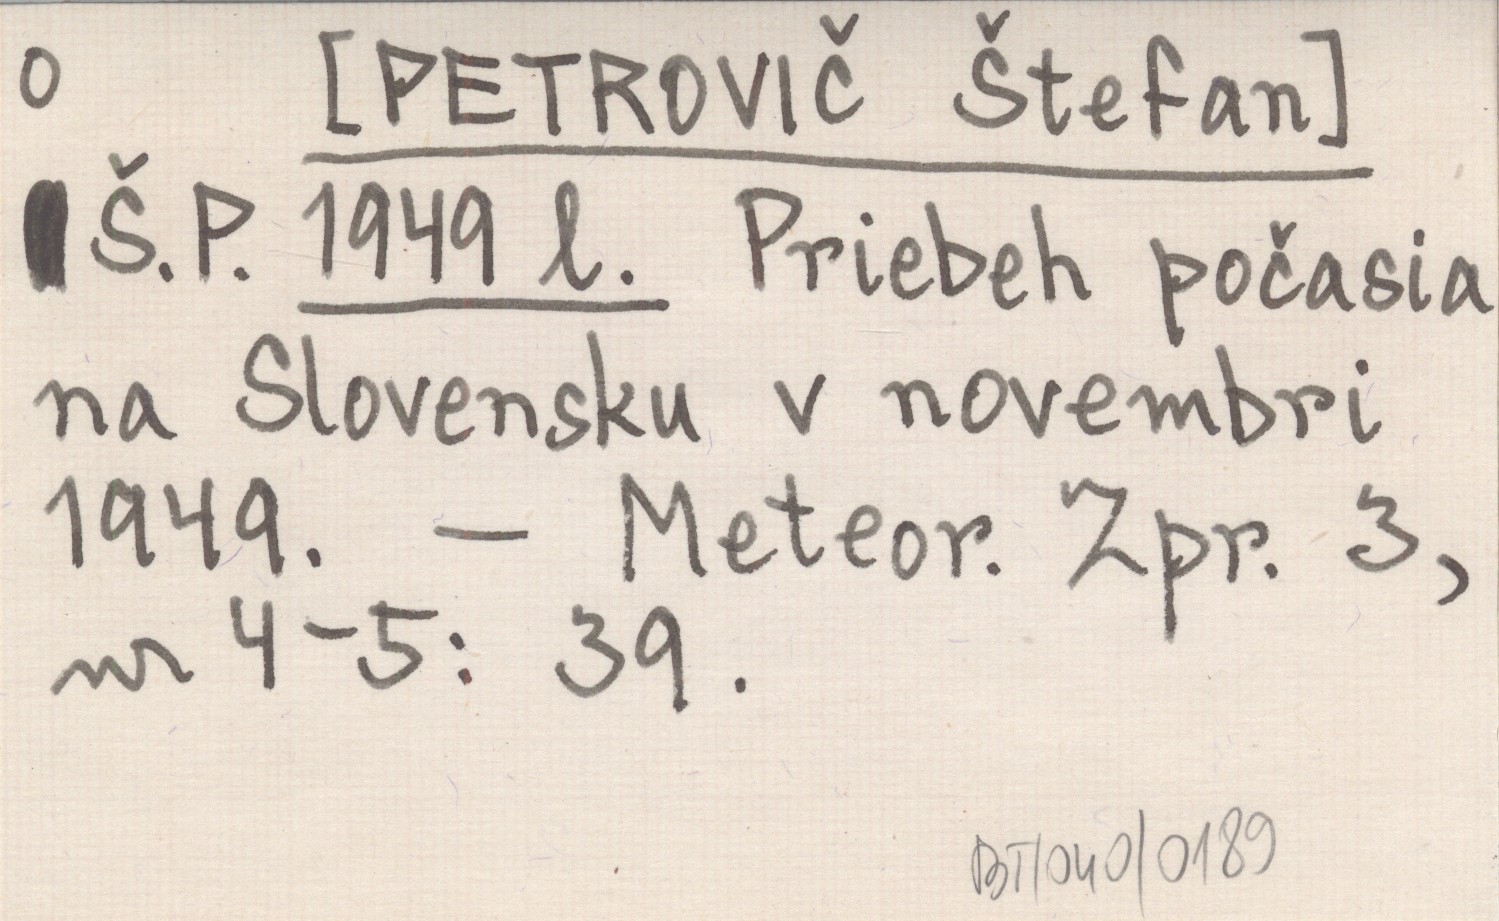 O [PETROVIČ Štefan]
Š.P. 1949 l. Priebeh počasia
na Slovensku v novembri
1949. – Meteor. Zpr. 3,
nr 4-5: 39.
BT/040/0189